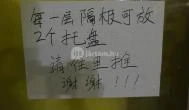 每一层隔板可放
2个托盘
请往里推
谢谢!!!